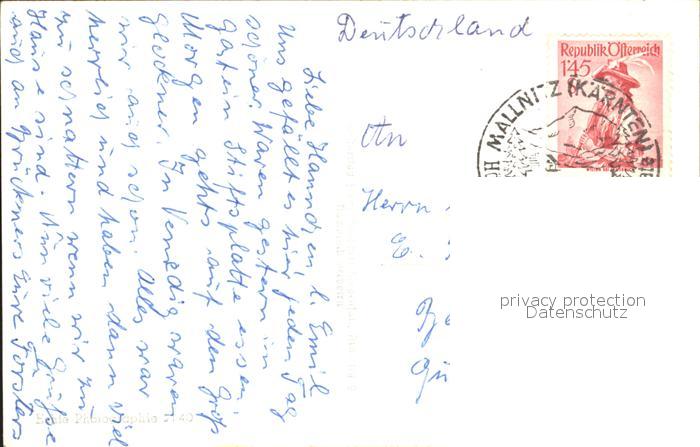 Deutschland
Republik Österreich
1'45
MALLNITZ (KÄRNTEN)
An
Herrn
E.
privacy protection
Datenschutz
Liebe Hannchen l. Emil
Uns gefällt es hier jeden Tag
schöner. Waren gestern in
Gastein Stiftsplatte essen
Morgen gehts auf den Groß
glockner. In Venedig waren
wir auch schon. Alles war
herrlich und haben dann viel
zu schnattern wenn wir zu
Hause sind. Nun viele Grüße
auch an Brückners Eure Forsters
Echte Photographie